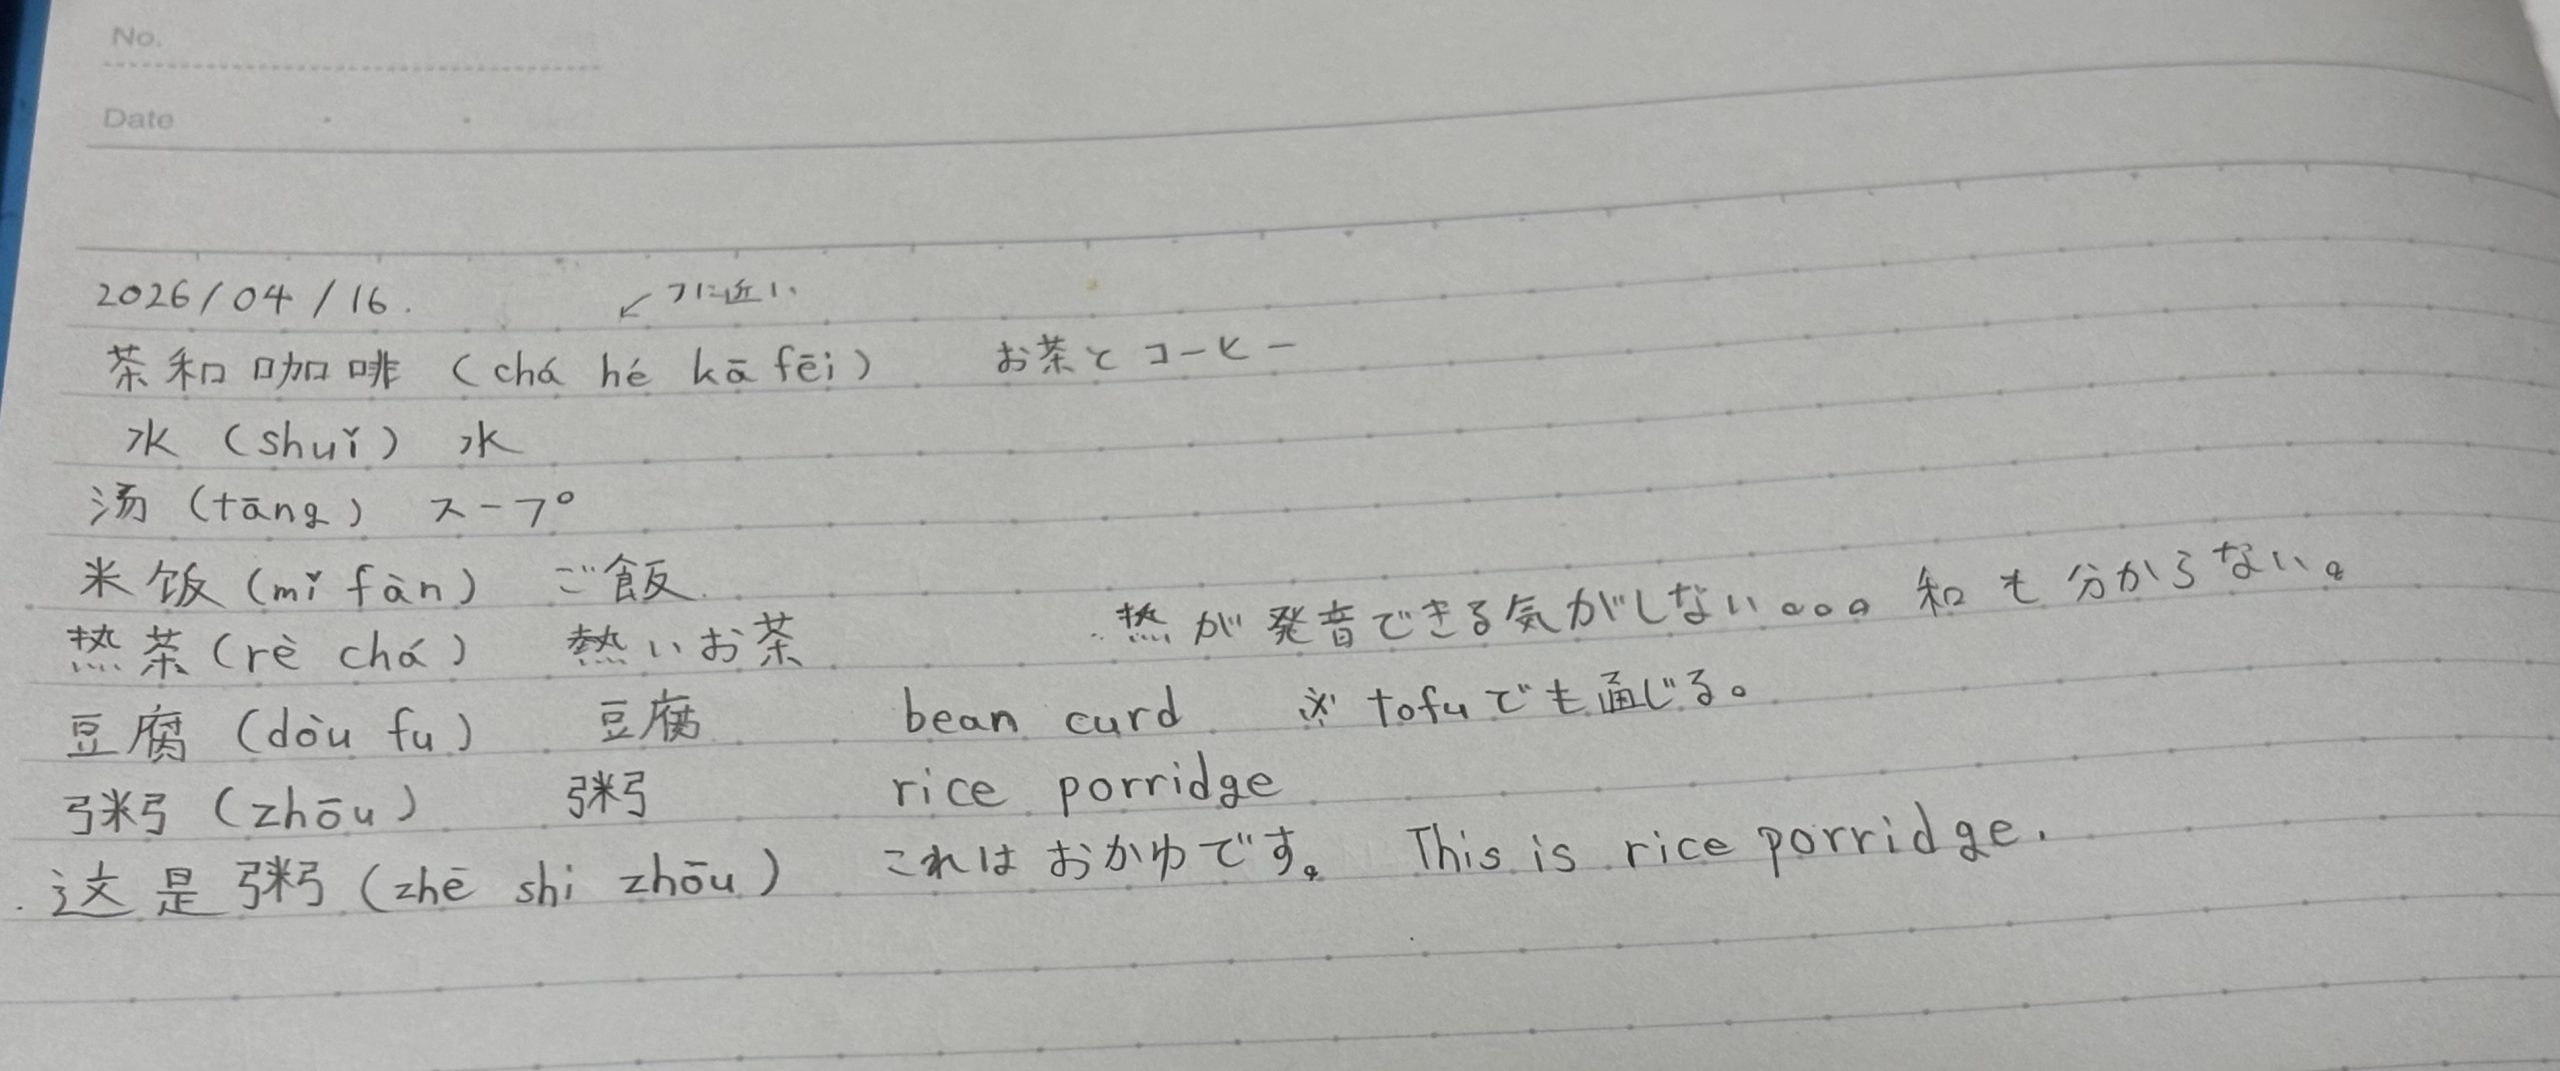 No.
Date
2026/04/16.
↙ フに近い
茶和咖啡 (chá hé kā fēi) お茶とコーヒー
水 (shuǐ) 水
汤 (tāng) スープ
米饭 (mǐ fàn) ご飯
热茶 (rè chá) 熱いお茶 热が発音できる気がしない。。。和も分からない。
豆腐 (dòu fu) 豆腐 bean curd ※ tofuでも通じる。
粥 (zhōu) 粥 rice porridge
这是粥 (zhē shi zhōu) これはおかゆです。 This is rice porridge.